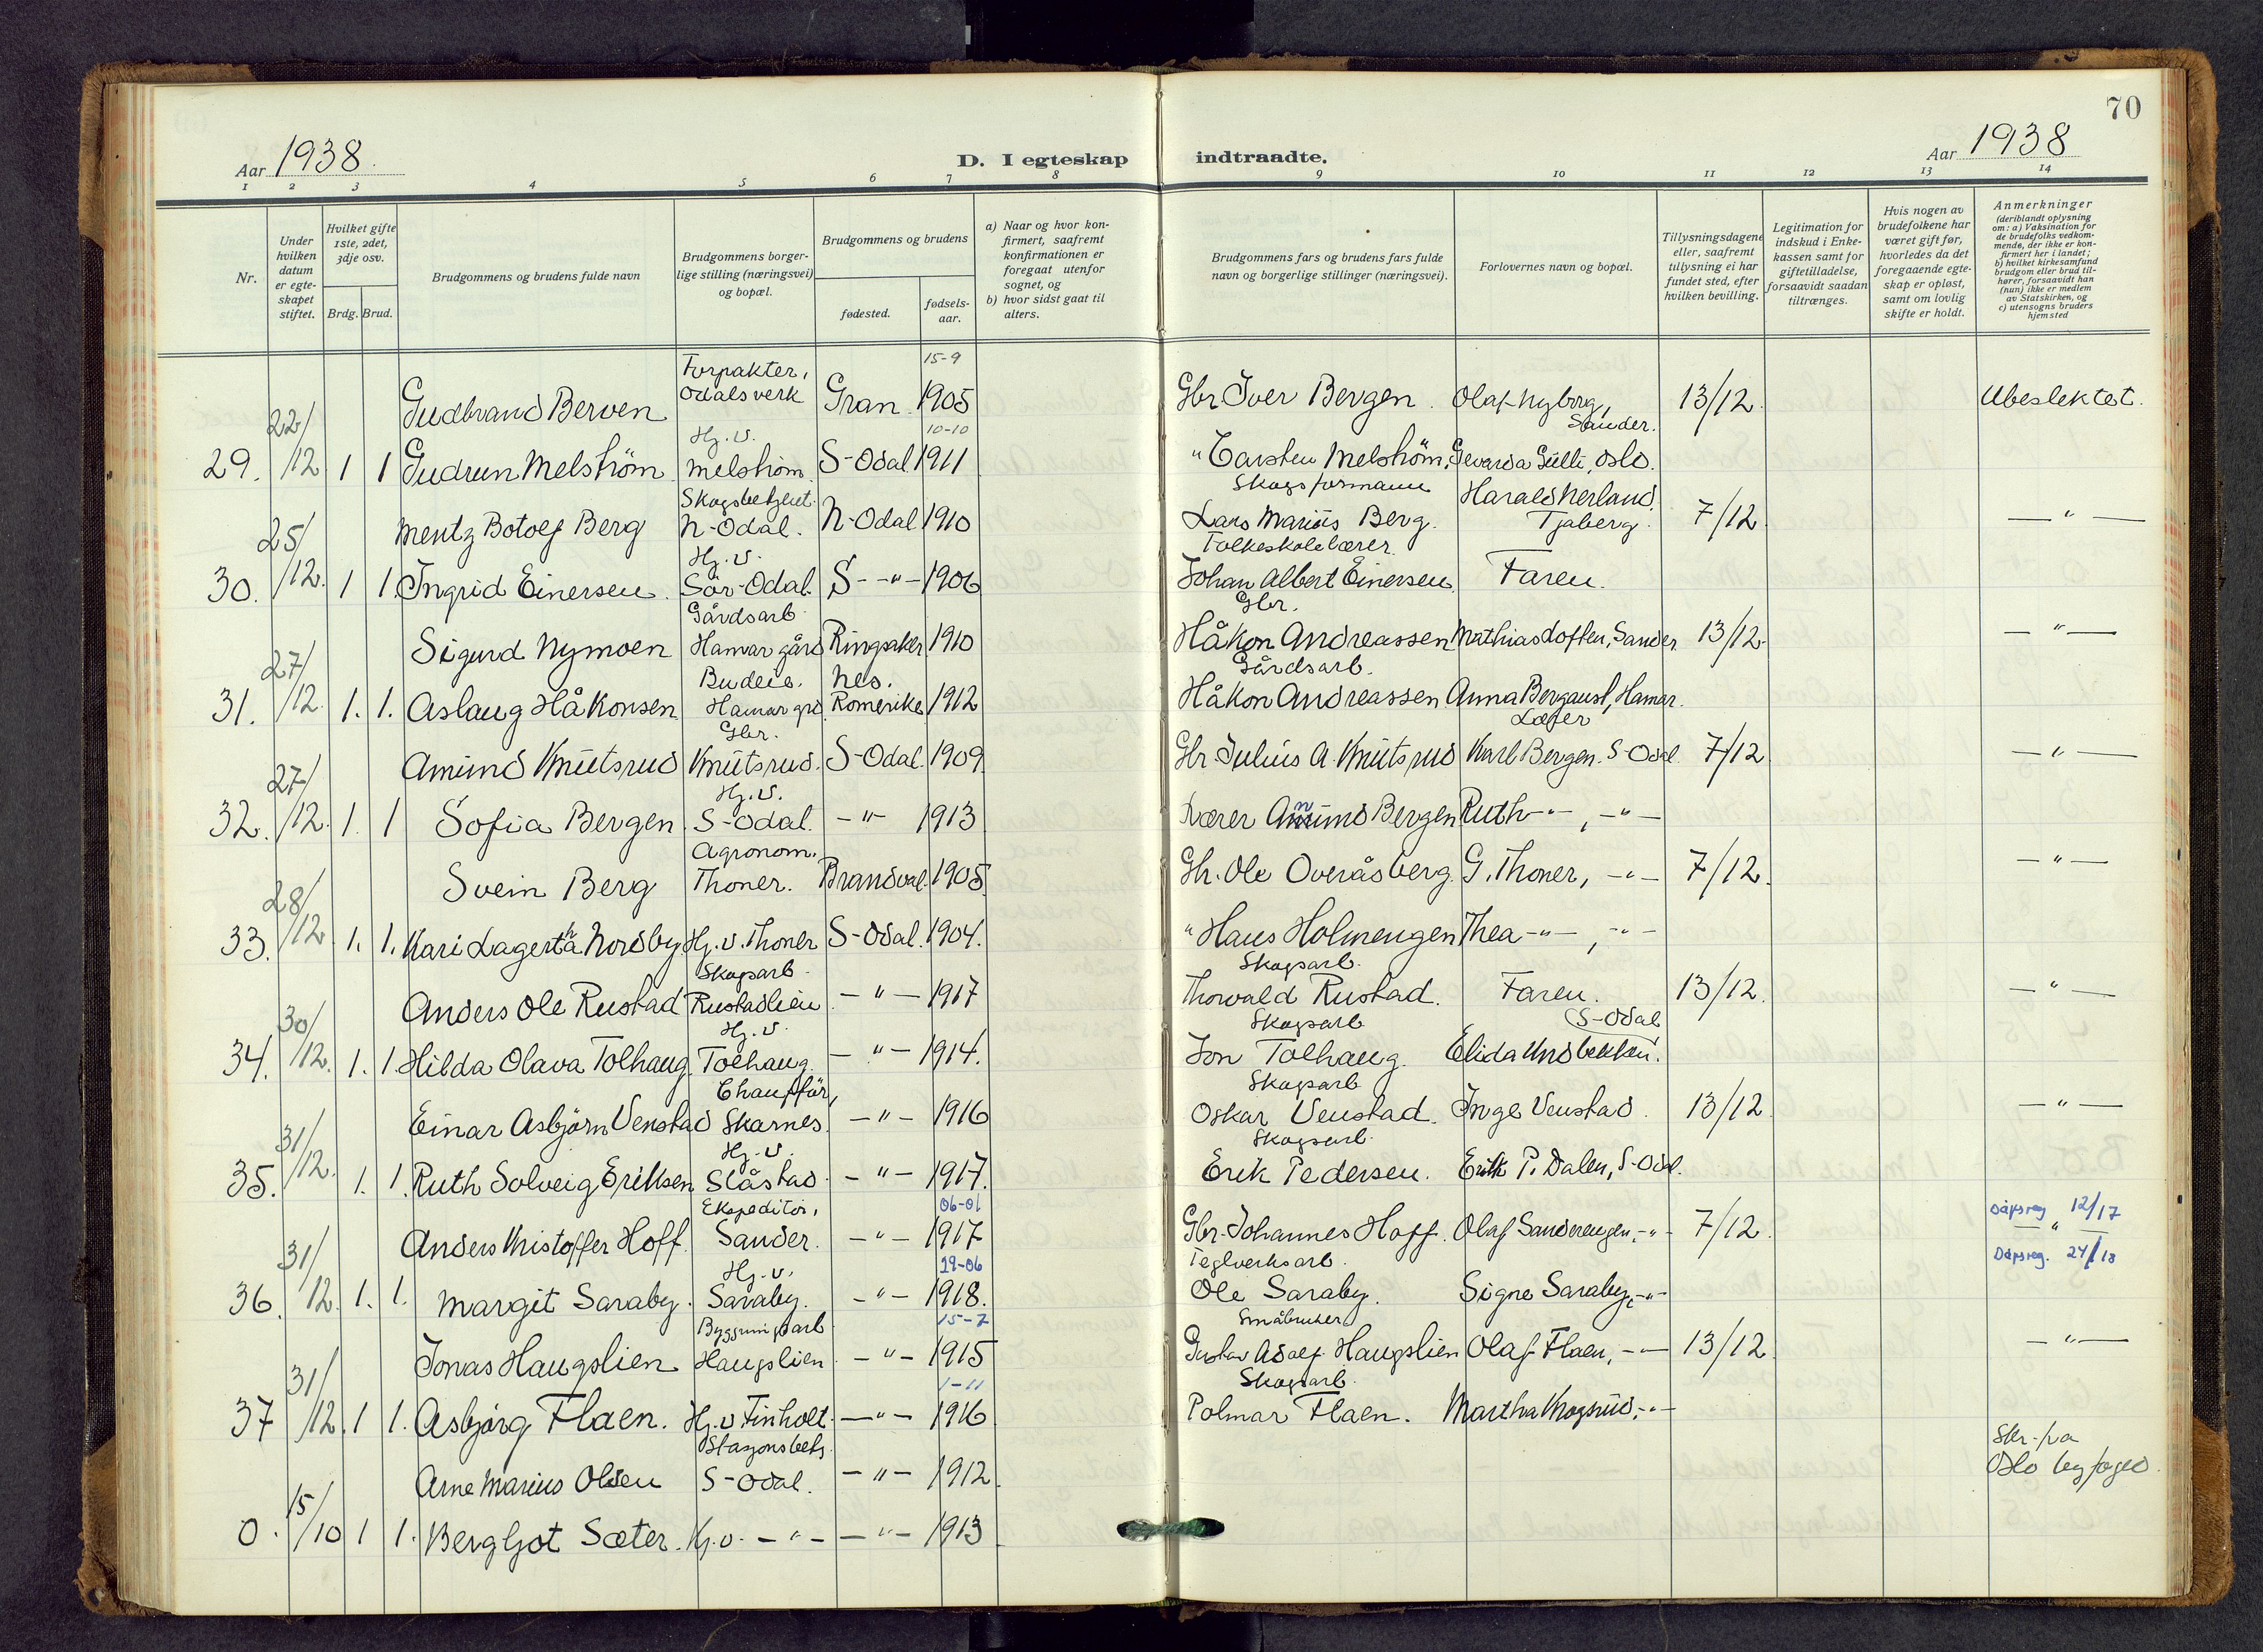 70
Aar 1938
D. I egteskap indtraadte.
Aar 1938
1 2 3 4 5 6 7 8 9 10 11 12 13 14
Nr.
Under hvilken datum er egteskapet stiftet.
Hvilket gifte 1ste, 2det, 3dje osv.
Brdg. Brud.
Brudgommens og brudens fulde navn
Brudgommens borgerlige stilling (næringsvei) og bopæl.
Brudgommens og brudens
fødested.
fødselsaar.
a) Naar og hvor konfirmert, saafremt konfirmationen er foregaat utenfor sognet, og
b) hvor sidst gaat til alters.
Brudgommens fars og brudens fars fulde navn og borgerlige stillinger (næringsvei).
Forlovernes navn og bopæl.
Tillysningsdagene eller, saafremt tillysning ei har fundet sted, efter hvilken bevilling.
Legitimation for indskud i Enkekassen samt for giftetilladelse, forsaavidt saadan tiltrænges.
Hvis nogen av brudefolkene har været gift før, hvorledes da det foregaaende egteskap er opløst, samt om lovlig skifte er holdt.
Anmerkninger (deriblandt oplysning om: a) Vaksination for de brudefolks vedkommende, der ikke er konfirmert her i landet; b) hvilket kirkesamfund brudgom eller brud tilhører, forsaavidt han (hun) ikke er medlem av Statskirken, og c) utensogns bruders hjemsted
Forpakter, 15-9
Gudbrand Berven Odalsverk Gran 1905 Gbr Iver Bergen. Olaf Nyborg, Sander. 13/12. Ubeslektet.
Hj. v. 10-10
29. 22/12 1 1 Gudrun Melström Melström S-Odal 1911 " Carsten Melström, Gevarda Gulli, Oslo.
Skogsbetjent. Skogsformann Harald Nerland
Mentz Botolf Berg N-Odal. N-Odal 1910 Lars Marius Berg. Tjaberg. 7/12 — " —
Hj. v. Folkeskolelærer
30. 25/12. 1 1. Ingrid Einersen. Sör-Odal. S - " - 1906 Johan Albert Einersen Faren.
Gårdsarb. Gbr.
Sigurd Nymoen Hamar gård Ringsaker 1910 Håkon Andreassen Mathias Loften, Sander 13/12. — " —
Budeie. Nes. Gårdsarb.
31. 27/12. 1. 1. Aslaug Håkonsen Hamar grd. Romerike 1912 Håkon Andreassen Anna Bergaust, Hamar.
Gbr.
Amund Knutsrud Knutsrud. S-Odal. 1909 Gbr Julius A. Knutsrud Karl Bergen. S-Odal 7/12 — " —
Hj. v.
32. 27/12. 1. 1 Sofia Bergen S-Odal. - " - 1913 Lærer Amund Bergen Ruth - " -, - " -
Agronom.
Svein Berg Thoner. Brandval 1905 Gbr. Ole Overåsberg G. Thoner, - " - 7/12. — " —
33. 28/12 1. 1. Kari Lagertha Nordby Hj. v. Thoner S-Odal. 1904. " Hans Holmengen Thea - " -, - " -
Skogsarb. Skogsarb.
Anders Ole Rustad Rustadlien - " - 1917 Thorvald Rustad. Faren. 13/12. — " —
Hj. v. Skogsarb. S-Odal
34. 30/12. 1. 1. Hilda Olava Tolhaug Tolhaug. - " - 1914. Jon Tolhaug.
Chaufför, Skogsarb
Einar Asbjörn Venstad Skarnes. - " - 1916 Oskar Venstad. Inge Venstad. 13/12 — " —
Hj. v. Skogsarb.
35. 31/12. 1. 1. Ruth Solveig Eriksen Slåstad - " - 1917. Erik Pedersen. Erik P. Dalen, S-Odal.
Ekspeditör, 06-01 Dåpsreg 12/17
Anders Kristoffer Hoff. Sander. - " - 1917 Gbr. Johannes Hoff. Olaf Sanderengen, - " - 7/12. — " —
Hj. v. 29-06 Teglverksarb. Dåpsreg. 24/18
36. 31/12. 1. 1. Margit Saraby. Saraby. - " - 1918. Ole Saraby. Signe Saraby, - " -
Bygningsarb 15-7 Småbruker
Jonas Haugslien Haugslien - " - 1915 Gustav Adolf Haugslien Olaf Flaen, - " - 13/12 — " —
1-11 Skogsarb.
37 31/12. 1 1. Asbjörg Flaen. Hj. v Finholt. - " - 1916 Polmar Flaen. Martha Krogsrud, - " -
Stasjonsbetj. Skr. fra
Arne Marius Olsen S-Odal. - " - 1912. Oslo byfoged.
0. 15/10 1 1. Bergljot Sæter. Hj. v. - " - - " - 1913